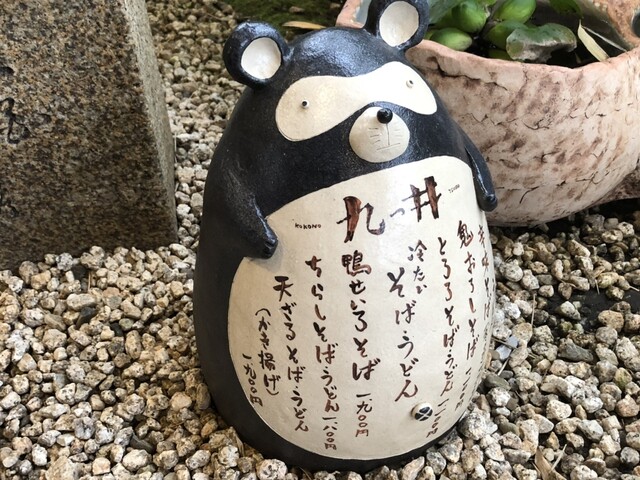 九っ井
KOKONO
TSUIDO
辛味そば
鬼おろしそば
とろろそば・うどん
冷たい
そば・うどん
鴨せいろそば 一、九〇〇円
ちらしそば・うどん 一、八〇〇円
天ざるそば・うどん
(かき揚げ) 一、九〇〇円